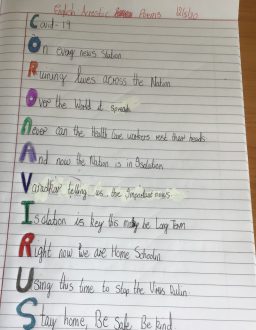 English Acrostic Poems 12/5/20
Covid-19
On every news Station
Ruining lives across the Nation
Over the World it spreads
Never can the Health Care workers rest their heads
And now the Nation is in Isolation
Varadkar telling us the important news
Isolation is key this may be Long Term
Right now we are Home Schooled
Using this time to Stop the Virus Rulin
Stay home, Be Safe Be kind